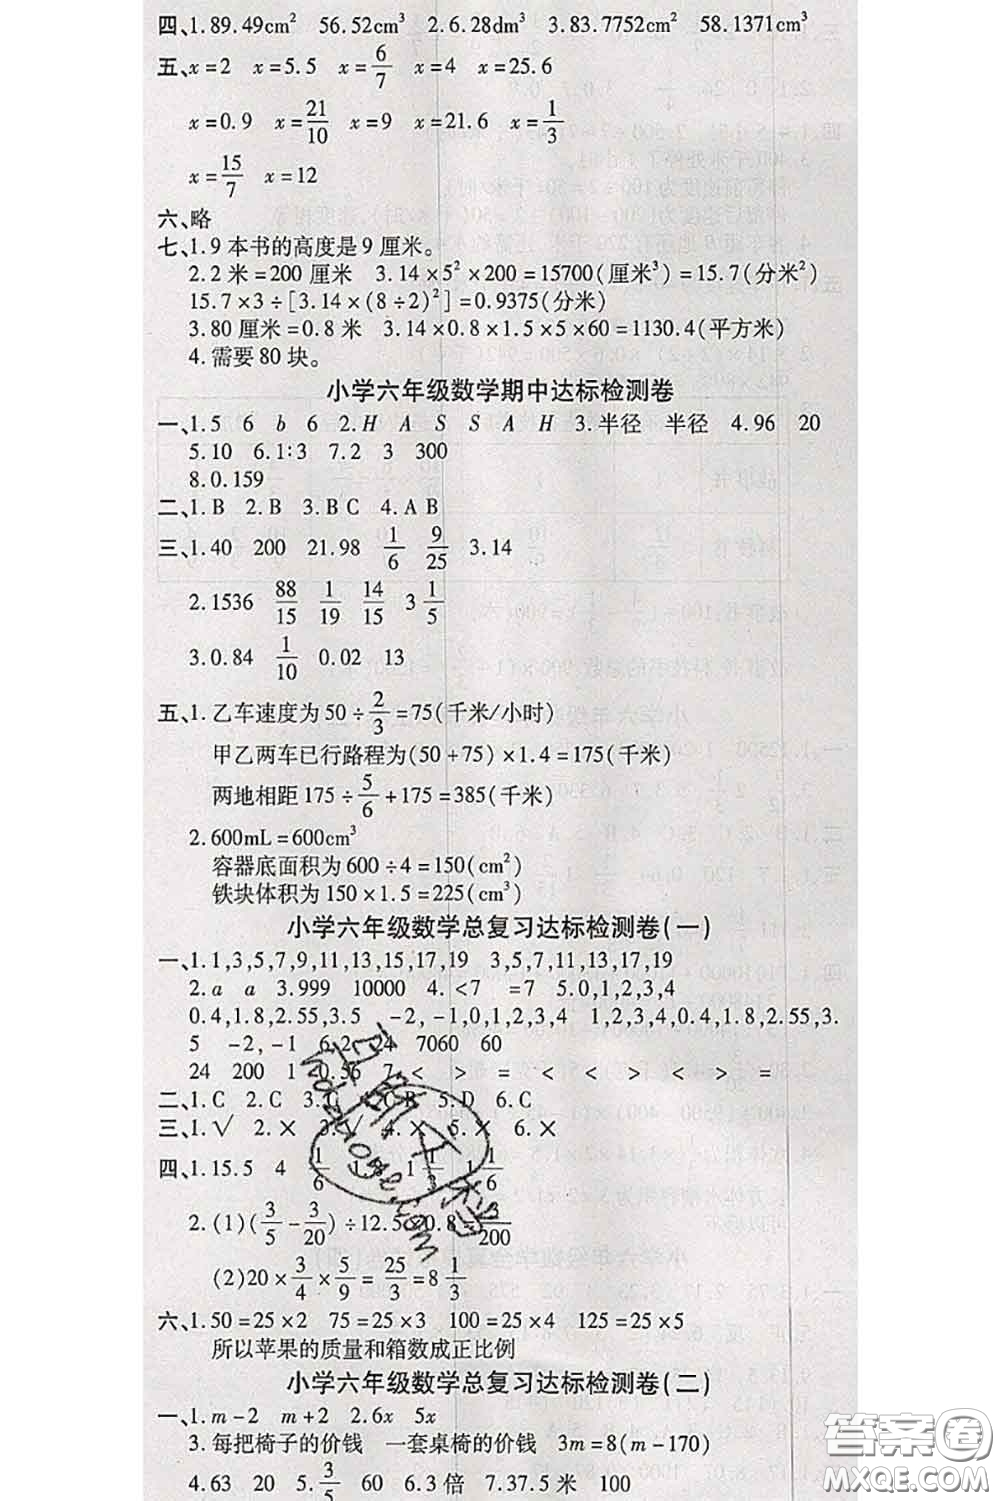 四、1.89.49cm²  56.52cm³  2.6.28dm³  3.83.7752cm²  58.1371cm³
五、x=2  x=5.5  x=6/7  x=4  x=25.6
x=0.9  x=21/10  x=9  x=21.6  x=1/3
x=15/7  x=12
六、略
七、1.9本书的高度是9厘米。
2.2米=200厘米  3.14×5²×200=15700(厘米³)=15.7(分米²)
15.7×3÷[3.14×(8÷2)²]=0.9375(分米)
3.80厘米=0.8米  3.14×0.8×1.5×5×60=1130.4(平方米)
4.需要80块。
小学六年级数学期中达标检测卷
一、1.5  6  b  6  2.H  A  S  S  A  H  3.半径  半径  4.96  20
5.10  6.1∶3  7.2  3  300
8.0.159
二、1.B  2.B  3.B C  4.A B
三、1.40  200  21.98  1/6  9/25  3.14
2.1536  88/15  1/19  14/15  3 1/5
3.0.84  1/10  0.02  13
五、1.乙车速度为50÷2/3=75(千米/小时)
甲乙两车已行路程为(50+75)×1.4=175(千米)
两地相距175÷5/6+175=385(千米)
2.600mL=600cm³
容器底面积为600÷4=150(cm²)
铁块体积为150×1.5=225(cm³)
小学六年级数学总复习达标检测卷(一)
一、1.1,3,5,7,9,11,13,15,17,19  3,5,7,11,13,17,19
2.a  a  3.999  10000  4.<7  =7  5.0,1,2,3,4
0.4,1.8,2.55,3.5  -2,-1,0,1,2,3,4  1,2,3,4,0.4,1.8,2.55,3.
5  -2,-1  6.2  24  7060  60
24  200  1  0.56  7.<  >  =  <  <  >  <  >  =
二、1.C  2.C  3.C  4.C B  5.D  6.C
三、1.√  2.×  3.√  4.×  5.×  6.×
四、1.15.5  4  1/6  1 1/3  1 1/6
2.(1)(3/5-3/20)÷12.5  0.8÷3/200
(2)20×3/4×5/9=25/3=8 1/3
六、1.50=25×2  75=25×3  100=25×4  125=25×5
所以苹果的质量和箱数成正比例
小学六年级数学总复习达标检测卷(二)
一、1.m-2  m+2  2.6x  5x
3.每把椅子的价钱  一套桌椅的价钱  3m=8(m-170)
4.63  20  5.3/5  60  6.3倍  7.37.5米  100
答案圈
MXQE.COM